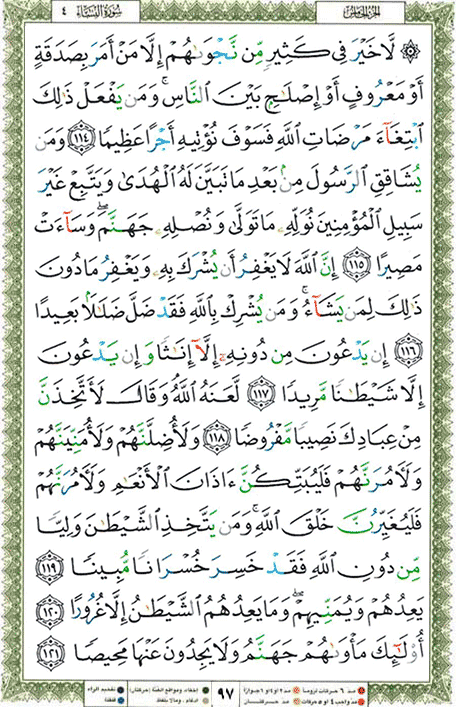 سورة النساء ٤
الجزء الخامس
۞ لَّا خَيْرَ فِي كَثِيرٍ مِّن نَّجْوَىٰهُمْ إِلَّا مَنْ أَمَرَ بِصَدَقَةٍ
أَوْ مَعْرُوفٍ أَوْ إِصْلَٰحٍۭ بَيْنَ ٱلنَّاسِۚ وَمَن يَفْعَلْ ذَٰلِكَ
ٱبْتِغَآءَ مَرْضَاتِ ٱللَّهِ فَسَوْفَ نُؤْتِيهِ أَجْرًا عَظِيمًا ١١٤ وَمَن
يُشَاقِقِ ٱلرَّسُولَ مِنۢ بَعْدِ مَا تَبَيَّنَ لَهُ ٱلْهُدَىٰ وَيَتَّبِعْ غَيْرَ
سَبِيلِ ٱلْمُؤْمِنِينَ نُوَلِّهِۦ مَا تَوَلَّىٰ وَنُصْلِهِۦ جَهَنَّمَۖ وَسَآءَتْ
مَصِيرًا ١١٥ إِنَّ ٱللَّهَ لَا يَغْفِرُ أَن يُشْرَكَ بِهِۦ وَيَغْفِرُ مَا دُونَ
ذَٰلِكَ لِمَن يَشَآءُۚ وَمَن يُشْرِكْ بِٱللَّهِ فَقَدْ ضَلَّ ضَلَٰلًۢا بَعِيدًا
١١٦ إِن يَدْعُونَ مِن دُونِهِۦٓ إِلَّآ إِنَٰثًا وَإِن يَدْعُونَ
إِلَّا شَيْطَٰنًا مَّرِيدًا ١١٧ لَّعَنَهُ ٱللَّهُۘ وَقَالَ لَأَتَّخِذَنَّ
مِنْ عِبَادِكَ نَصِيبًا مَّفْرُوضًا ١١٨ وَلَأُضِلَّنَّهُمْ وَلَأُمَنِّيَنَّهُمْ
وَلَءَامُرَنَّهُمْ فَلَيُبَتِّكُنَّ ءَاذَانَ ٱلْأَنْعَٰمِ وَلَءَامُرَنَّهُمْ
فَلَيُغَيِّرُنَّ خَلْقَ ٱللَّهِۚ وَمَن يَتَّخِذِ ٱلشَّيْطَٰنَ وَلِيًّا
مِّن دُونِ ٱللَّهِ فَقَدْ خَسِرَ خُسْرَانًا مُّبِينًا ١١٩
يَعِدُهُمْ وَيُمَنِّيهِمْۖ وَمَا يَعِدُهُمُ ٱلشَّيْطَٰنُ إِلَّا غُرُورًا ١٢٠
أُو۟لَٰٓئِكَ مَأْوَىٰهُمْ جَهَنَّمُ وَلَا يَجِدُونَ عَنْهَا مَحِيصًا ١٢١
مد ٦ حركات لزوماً مد ٢ او ٤ او ٦ جوازاً
مد واجب ٤ او ٥ حركات مد حركتان
٩٧
إخفاء، ومواقع الغنة (حركتان) تفخيم الراء
ادغام، ومالا يلفظ قلقلة